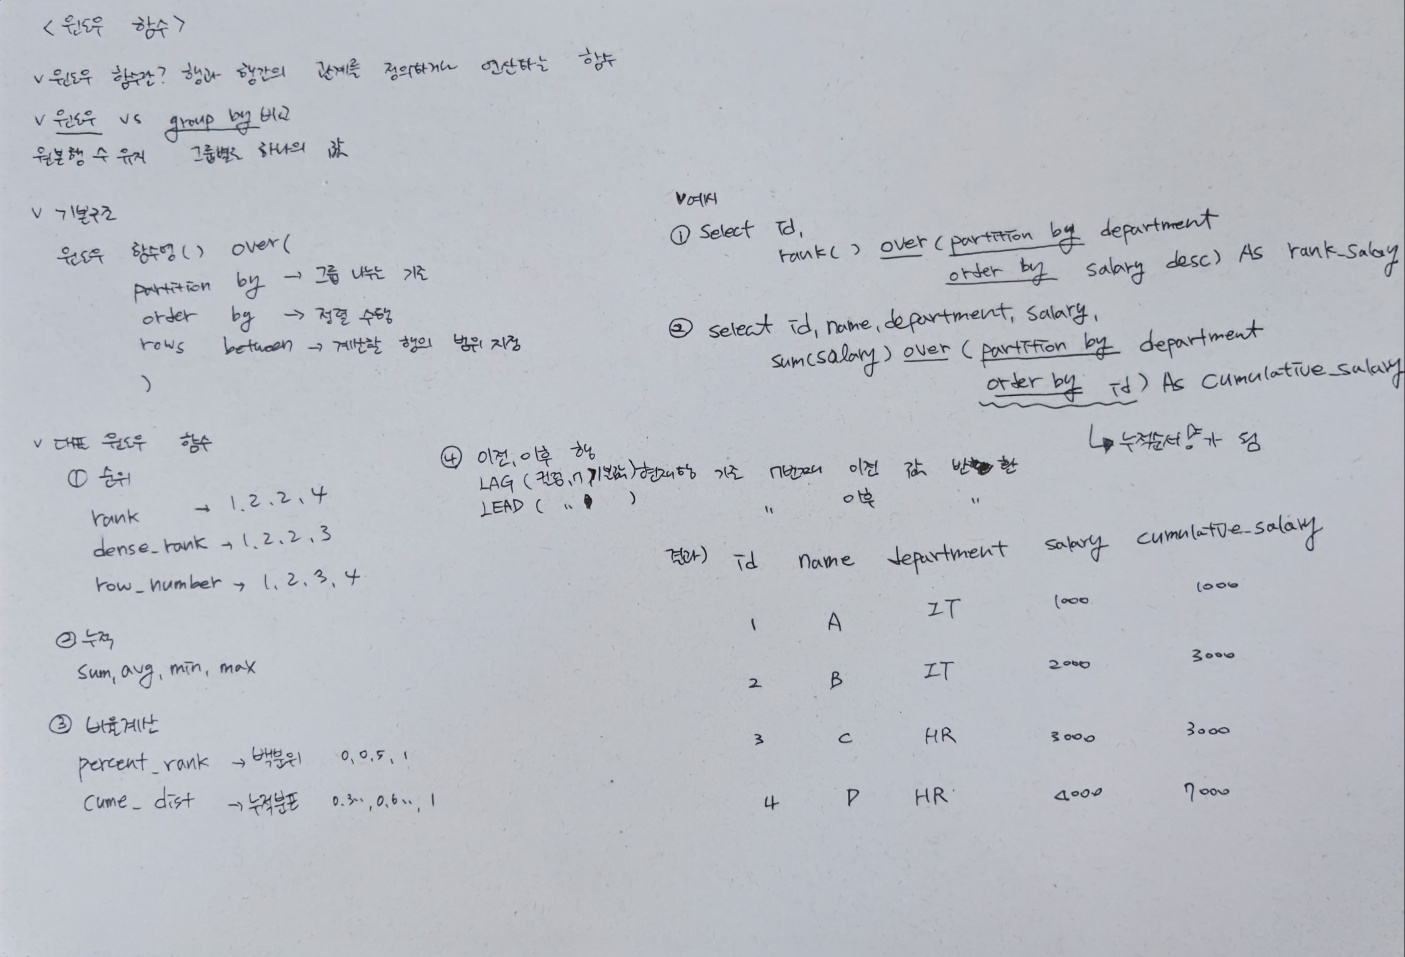 <윈도우 함수>
v 윈도우 함수란? 행과 행간의 관계를 정의하거나 연산하는 함수
v 윈도우 vs group by 비교
원본행 수 유지 그룹별로 하나의 값
v 기본구조
윈도우 함수명() over(
partition by → 그룹 나누는 기준
order by → 정렬 수행
rows between → 계산할 행의 범위 지정
)
v 대표 윈도우 함수
① 순위
rank → 1, 2, 2, 4
dense_rank → 1, 2, 2, 3
row_number → 1, 2, 3, 4
② 누적
sum, avg, min, max
③ 비율계산
percent_rank → 백분위 0, 0.5, 1
cume_dist → 누적분포 0.3··, 0.6··, 1
④ 이전, 이후 행
LAG (컬럼, n, 기본값) 현재행 기준 n번째 이전 값 반환
LEAD ( 〃 ) 〃 이후 〃
v 예시
① Select id,
rank() over (partition by department
order by salary desc) As rank_salary
② select id, name, department, salary,
sum(salary) over (partition by department
order by id) As cumulative_salary
↳ 누적순서가 됨
결과) id name department salary cumulative_salary
1 A IT 1000 1000
2 B IT 2000 3000
3 C HR 3000 3000
4 D HR 4000 7000